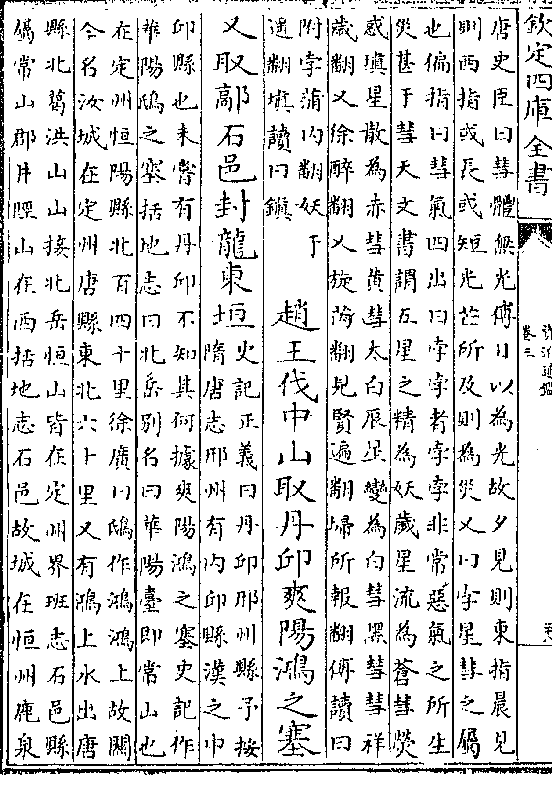 欽定四庫全書
資治通鑑
卷三
唐史臣曰彗體無光傅日以為光故夕見則東指晨見
則西指或長或短光芒所及則為災又曰孛星彗之屬
也偏指曰彗氣四出曰孛孛者孛孛非常惡氣之所生
災甚于彗天文書謂五星之精為妖歲星流為蒼彗熒
惑填星散為赤彗黃彗太白辰星變為白彗黑彗彗祥
歲翻又徐醉翻又旋芮翻見賢遍翻埽所報翻傅讀曰
附孛蒲内翻妖于
遥翻填讀曰鎮
趙王伐中山取丹邱爽陽鴻之塞
又取鄗石邑封龍東垣
史記正義曰丹邱邢州縣予按
隋唐志邢州有内邱縣漢之中
邱縣也未嘗有丹邱不知其何據爽陽鴻之塞史記作
華陽鴟之塞括地志曰北岳别名曰華陽臺即常山也
在定州恒陽縣北百四十里徐廣曰鴟作鴻鴻上故關
今名汝城在定州唐縣東北六十里又有鴻上水出唐
縣北葛洪山山接北岳恒山皆在定州界班志石邑縣
屬常山郡井陘山在西括地志石邑故城在恒州鹿泉